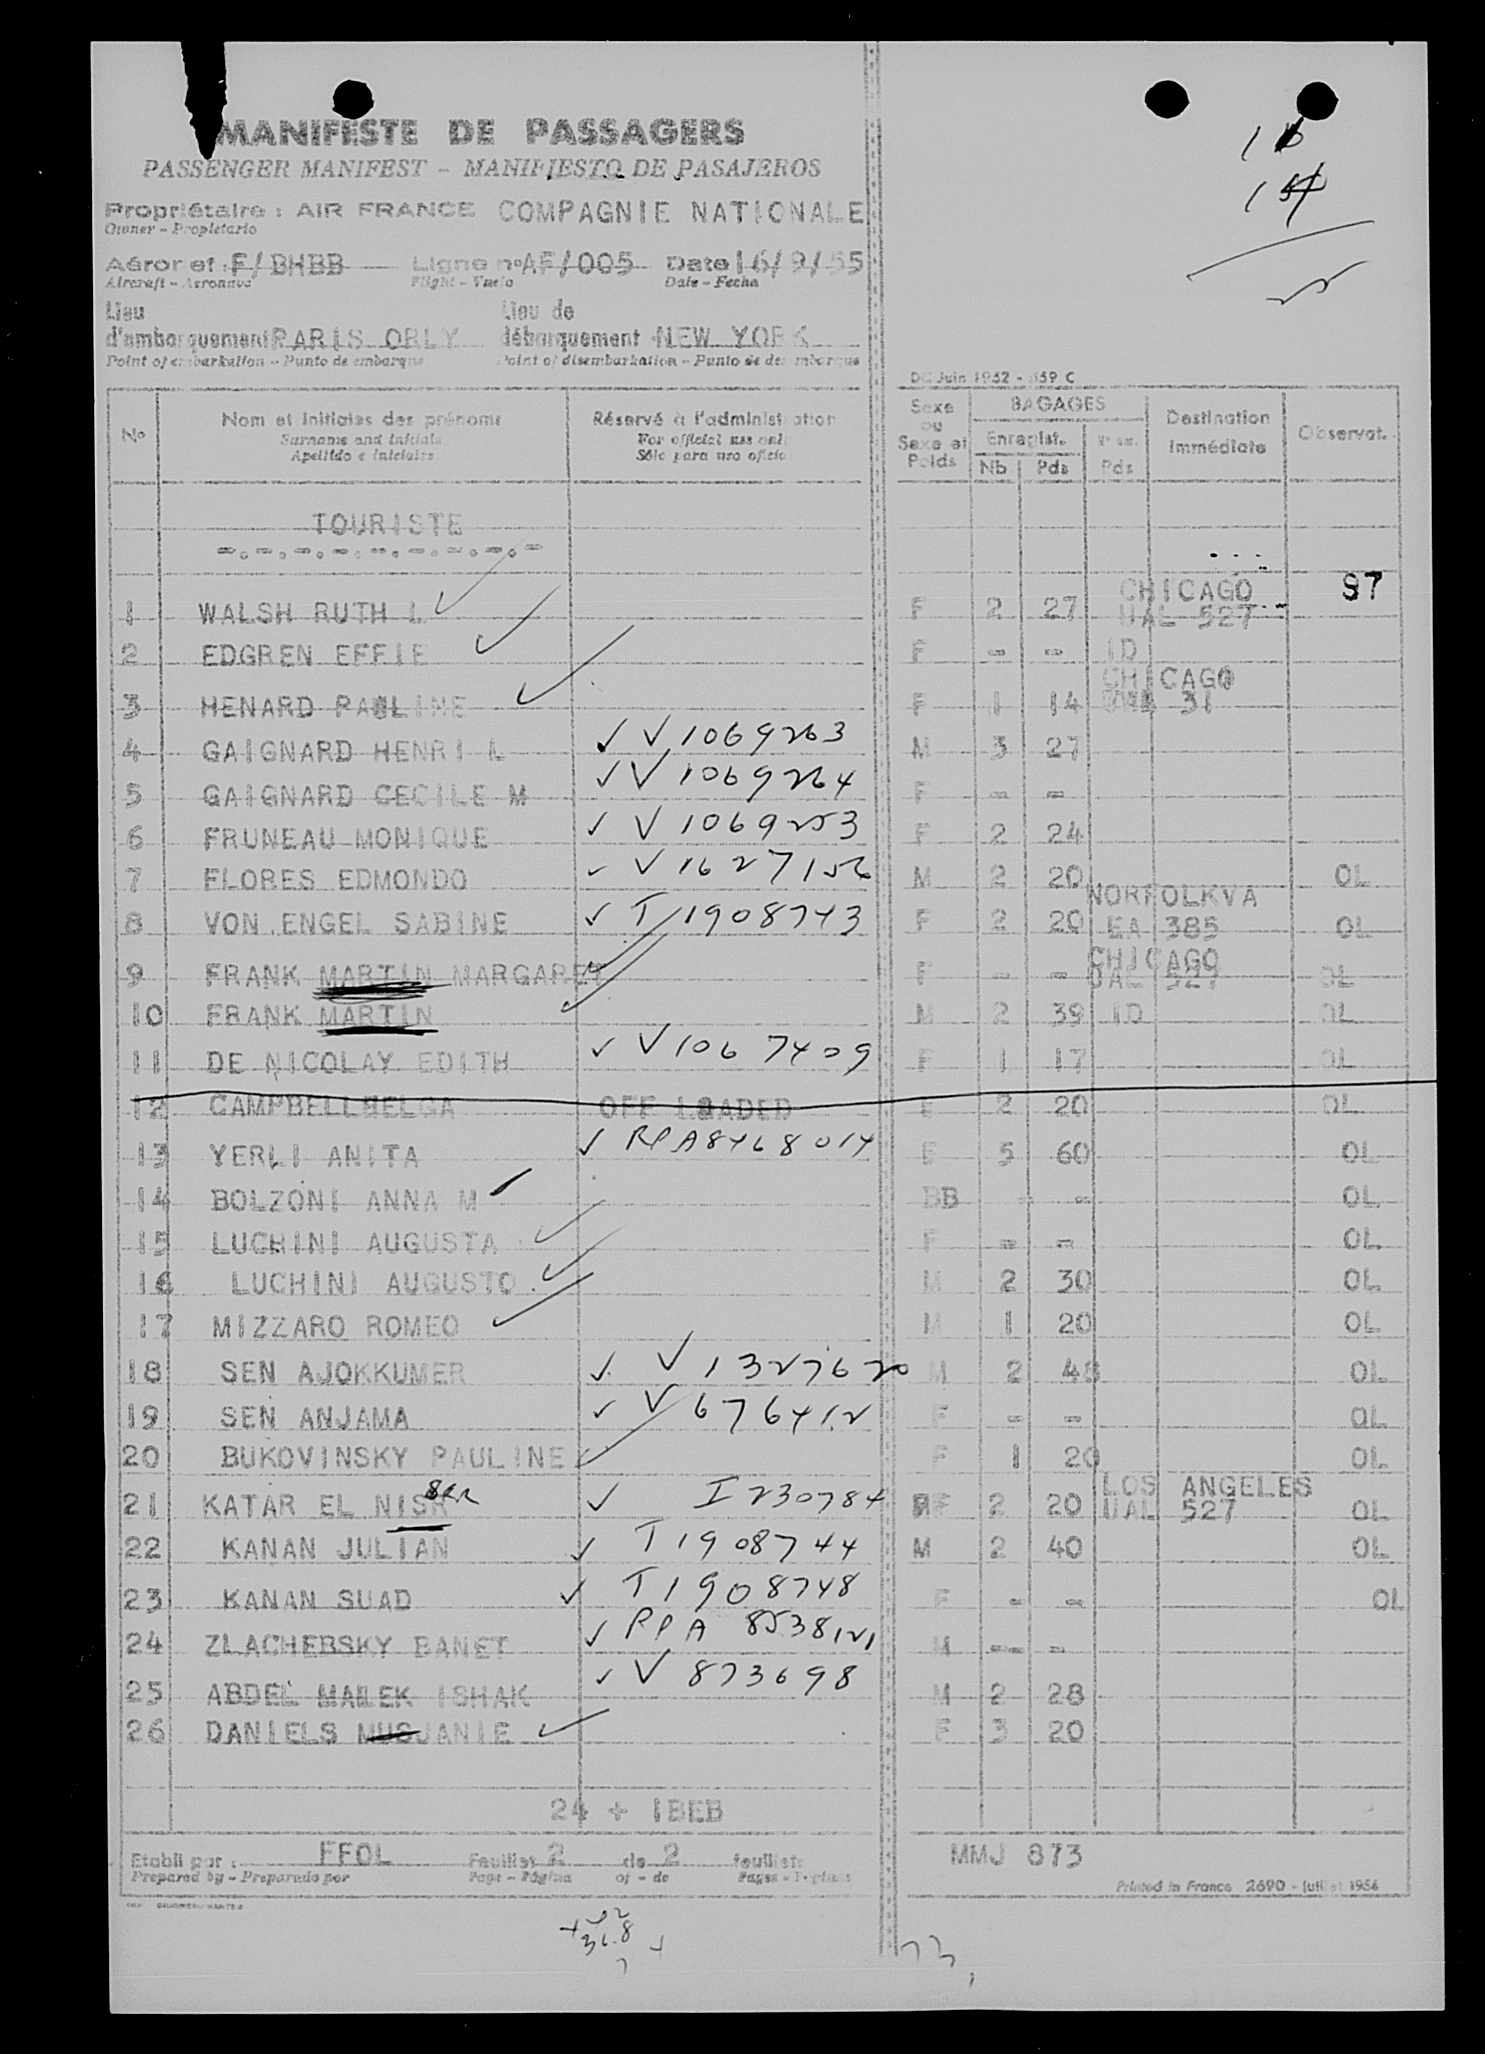 MANIFESTE DE PASSAGERS
PASSENGER MANIFEST - MANIFIESTO DE PASAJEROS
Propriétaire : AIR FRANCE COMPAGNIE NATIONALE
Owner - Propietario
Aéronef : F/BHBB Ligne n° AF/005 Date 16/9/55
Aircraft - Aeronave Flight - Vuelo Date - Fecha
Lieu d'embarquement PARIS ORLY Lieu de débarquement NEW YORK
Point of embarkation - Punto de embarque Point of disembarkation - Punto de desembarque
DC Juin 1952 - 659 C
N° Nom et initiales des prénoms Réservé à l'administration Sexe ou Sexe et Poids BAGAGES Destination immédiate Observat.
Surname and initials For official use only Enregist.
Apellido e iniciales Sólo para uso oficial Nb Pds Pds
TOURISTE
1 WALSH RUTH L F 2 27 CHICAGO UAL 527 97
2 EDGREN EFFIE F - - ID
3 HENARD PAULINE F 1 14 CHICAGO 31
4 GAIGNARD HENRI L V 1069263 M 3 27
5 GAIGNARD CECILE M V 1069264 F - -
6 FRUNEAU MONIQUE V 1069253 F 2 24
7 FLORES EDMONDO V 1627156 M 2 20 OL
8 VON ENGEL SABINE T 1908743 F 2 20 NORFOLKVA EA 385 OL
9 FRANK MARTIN MARGARET F - - CHICAGO UAL 527 OL
10 FRANK MARTIN M 2 39 ID OL
11 DE NICOLAY EDITH V 1067409 F 1 17 OL
12 CAMPBELL HELGA OFF LOADED F 2 20 OL
13 YERLI ANITA RPA 8468014 F 5 60 OL
14 BOLZONI ANNA M BB - - OL
15 LUCHINI AUGUSTA F - - OL
16 LUCHINI AUGUSTO M 2 30 OL
17 MIZZARO ROMEO M 1 20 OL
18 SEN AJOKKUMER V 1327620 M 2 48 OL
19 SEN ANJAMA V 676412 F - - OL
20 BUKOVINSKY PAULINE F 1 20 OL
21 KATAR EL NISR I 230784 F 2 20 LOS ANGELES UAL 527 OL
22 KANAN JULIAN T 1908744 M 2 40 OL
23 KANAN SUAD T 1908748 F - - OL
24 ZLACHEBSKY BANET RPA 8538121 M - -
25 ABDEL MALEK ISHAK V 873698 M 2 28
26 DANIELS JANIE F 3 20
24 + 1BEB
Etabli par : FFOL Feuillet 2 de 2 feuillets MMJ 873
Prepared by - Preparado por Page - Página of - de Pages - Páginas
Printed in France 2690 - Juillet 1954